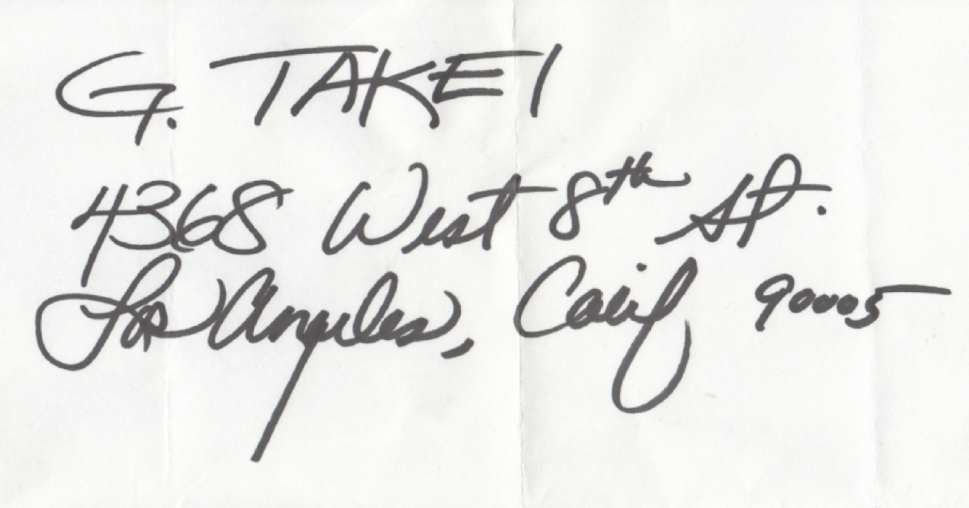 G. TAKEI
4368 West 8th St.
Los Angeles, Calif 90005